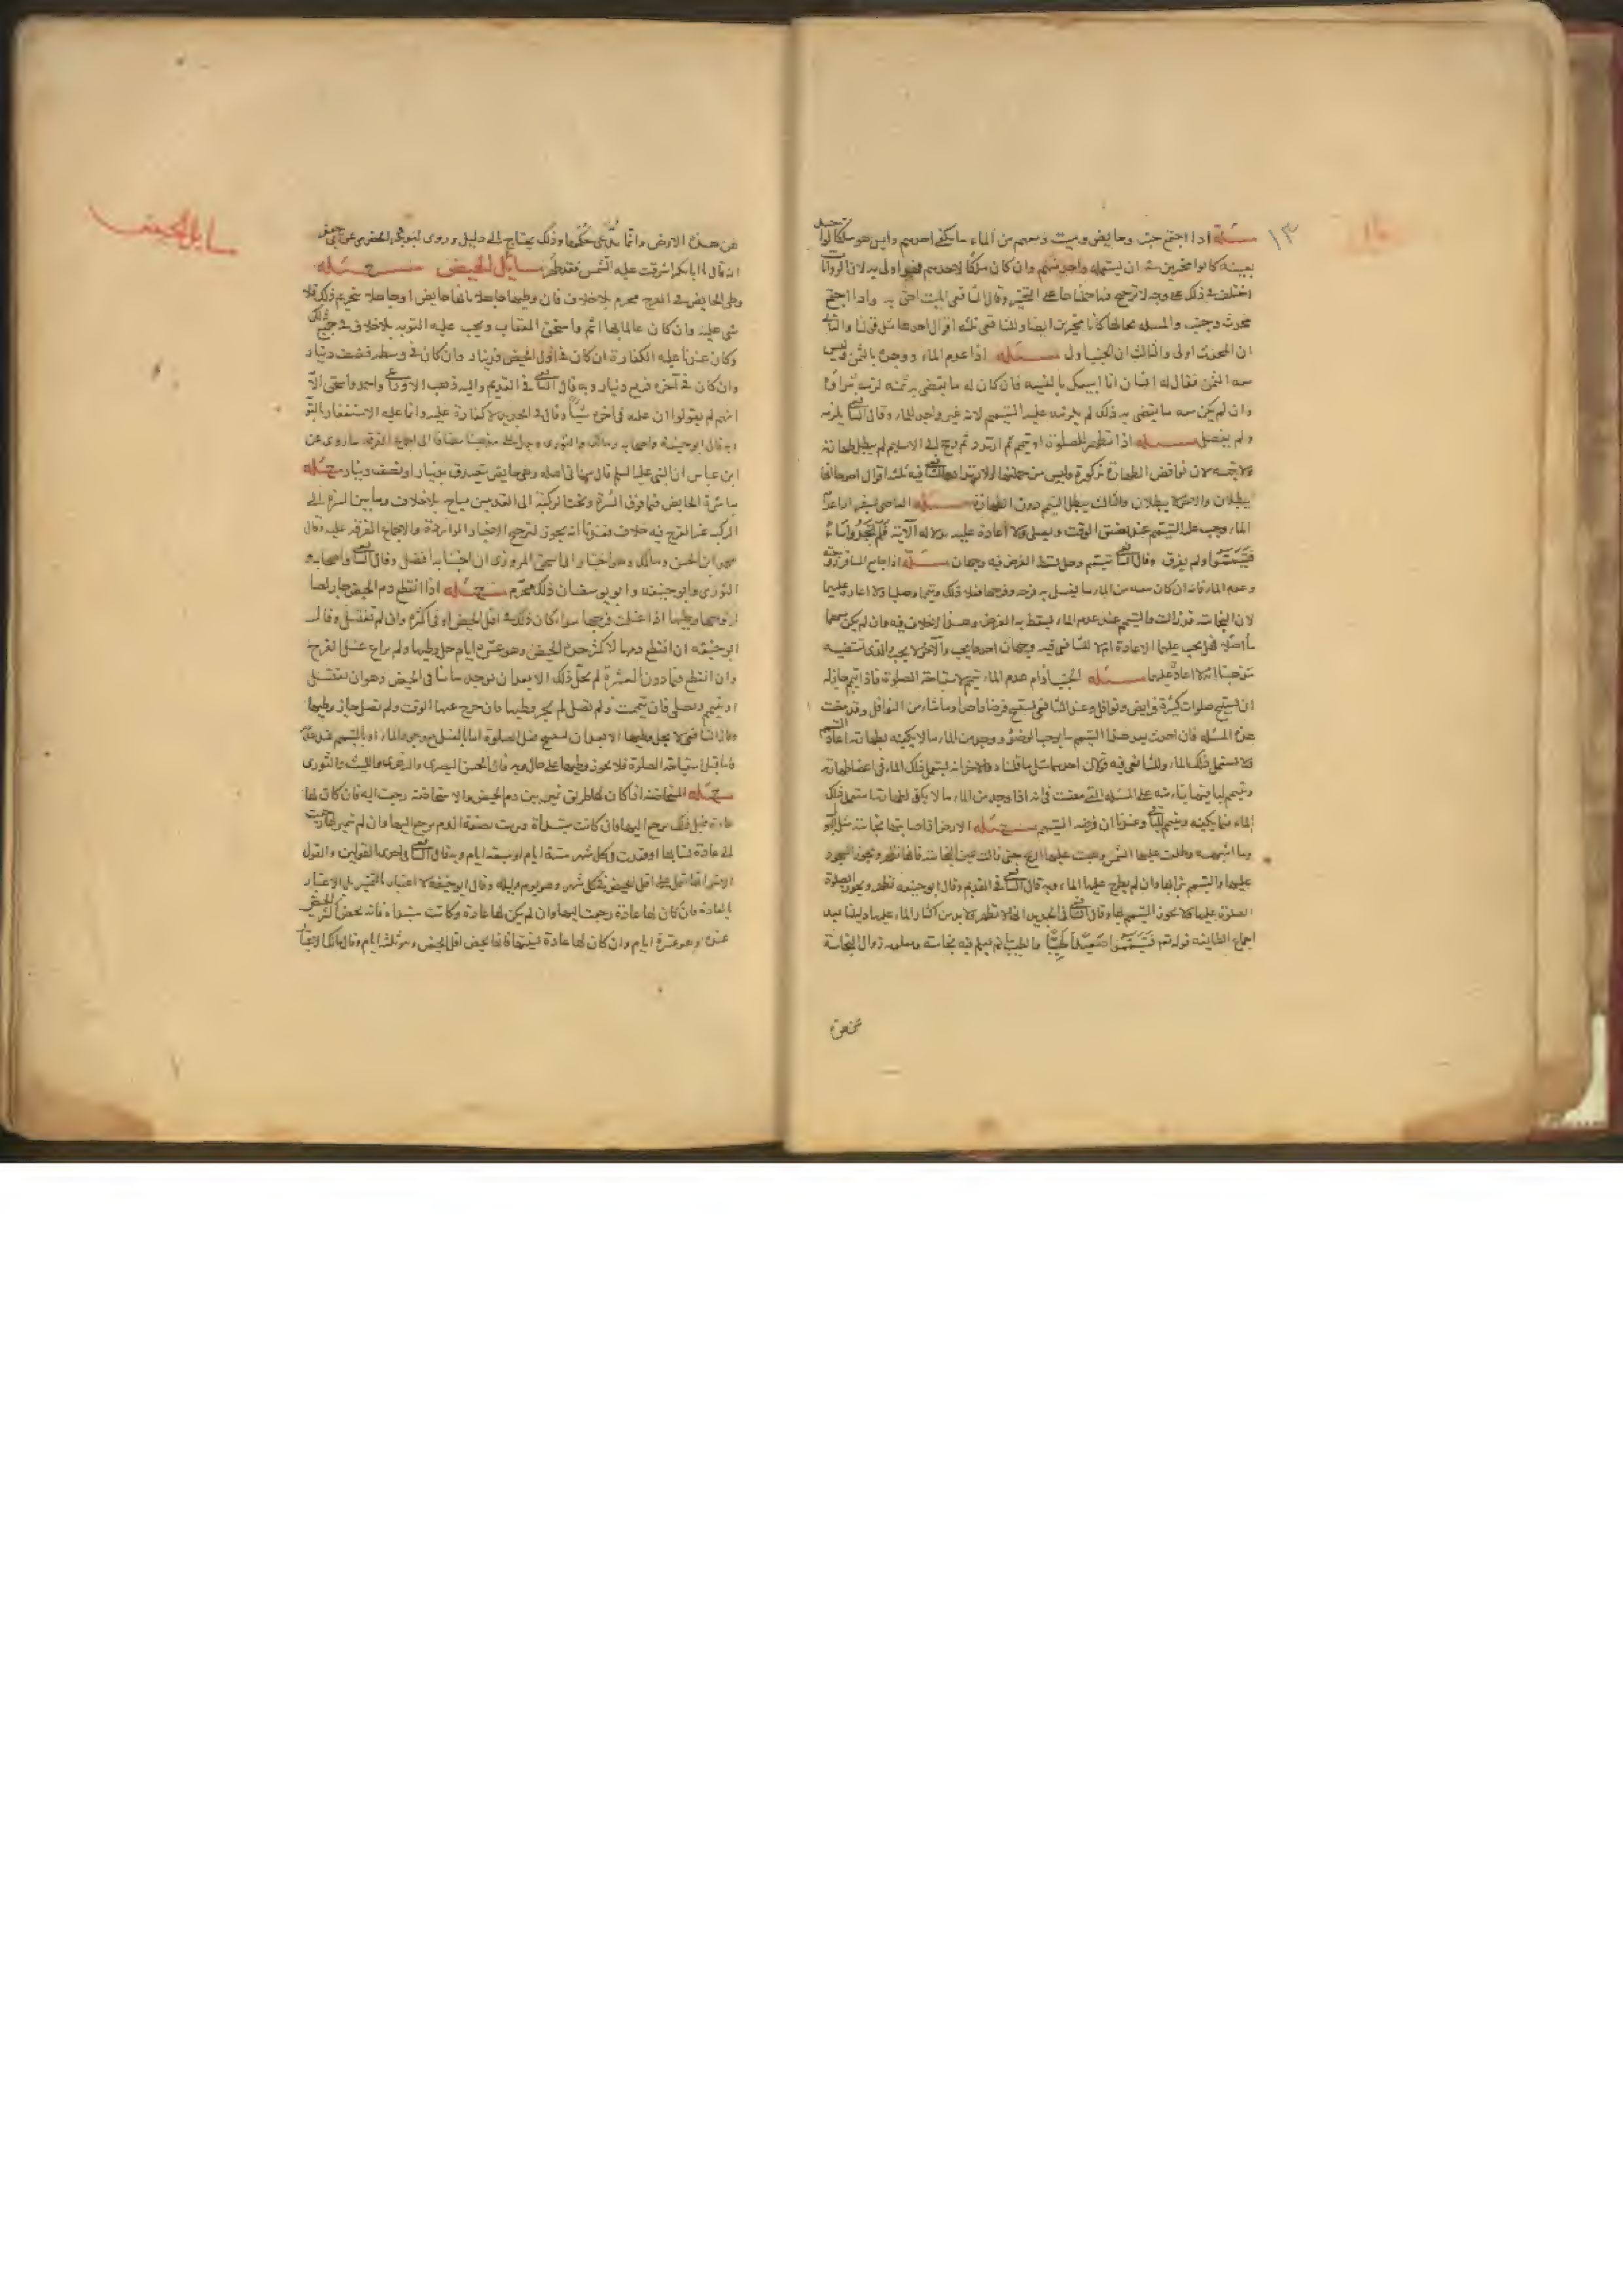 مسئله اذا اجتمع جنب وحايض وميت ومعهم من الماء ما يكفي احدهم وليس هو ملكا لواحد
بعينه كانوا مخيرين في ان يستعمله واحد منهم وان كان ملكا لاحدهم فهو اولى به لان الروايات
اختلفت في ذلك على وجه لا ترجيح فحملناها على التخيير وقال الشافعي الميت احق به واذا اجتمع
محدث وجنب والمسئله بحالها كانا مخيرين ايضا وللشافعي ثلثه اقوال احدها مثل قولنا والثاني
ان المحدث اولى والثالث ان الجنب اولى مسئله اذا عدم الماء ووجده بالثمن وليس
معه الثمن فقال له انسان انا ابيعك بالنسيه فان كان له ما يقضي به ثمنه لزمه شراؤه
وان لم يكن معه ما يقضي به ذلك لم يلزمه وعليه التيمم لانه غير واجد للماء وقال الشافعي يلزمه
ولم يفصل مسئله اذا تطهر للصلوة او تيمم ثم ارتد ثم رجع الى الاسلام لم يبطل طهارته
ولا تيممه لان نواقض الطهارة مذكورة وليس من جملتها الارتداد وللشافعي فيه ثلثه اقوال احدها انهما
يبطلان والاخر لا يبطلان والثالث يبطل التيمم دون الطهارة مسئله العاصي بسفره اذا عدم
الماء وجب عليه التيمم عند تضيق الوقت ويصلي ولا اعادة عليه دلالة الآية فلم تجدوا ماء
فتيمموا ولم يفرق وقال الشافعي يتيمم وهل يسقط الفرض فيه وجهان مسئله اذا جامع المسافر زوجته
وعدم الماء فانه ان كان معه من الماء ما يغسل به فرجه وفرجها فعلا ذلك وتيمما وصليا ولا اعادة عليهما
لان النجاسة قد زالت والتيمم عند عدم الماء يسقط به الفرض وهذا لا خلاف فيه وان لم يكن معهما
ماء اصلا فهل يجب عليهما الاعادة ام لا للشافعي فيه وجهان احدهما يجب والآخر لا يجب والذي يقتضيه
مذهبنا انه لا اعادة عليهما مسئله الجنب اذا عدم الماء تيمم لاستباحة الصلوة فاذا تيمم جاز له
ان يستبيح صلوات كثيرة فرايض ونوافل وعند الشافعي يستبيح فرضا واحدا وما شاء من النوافل وقد مضت
هذه المسئله فان احدث بعد هذا التيمم ما يوجب الوضوء ووجد من الماء ما لا يكفيه لطهارته اعاد التيمم
ولا يستعمل ذلك الماء وللشافعي فيه قولان احدهما مثل ما قلناه والاخر انه يستعمل ذلك الماء في اعضاء طهارته
ويتيمم لما بقي بناء منه على المسئله التي مضت في انه اذا وجد من الماء ما لا يكفي لطهارته استعمل ذلك
الماء فيما يكفيه ويتيمم للباقي وعندنا ان فرضه التيمم مسئله الارض اذا اصابتها نجاسة مثل البول
وما اشبهه وطلعت عليها الشمس وهبت عليها الريح حتى زالت عين النجاسة فانها تطهر ويجوز السجود
عليها والتيمم بترابها وان لم يطرح عليها الماء وبه قال الشافعي في القديم وقال ابو حنيفه تطهر ويجوز الصلوة
الصلوة عليها ولا يجوز التيمم بها وقال الشافعي في الجديد انها لا تطهر ولا بد من اكثار الماء عليها دليلنا بعد
اجماع الطايفه قوله تع فتيمموا صعيدا طيبا والطيب ما لم يعلم فيه نجاسة ومعلوم زوال النجاسة
عن هذه
عن هذه الارض وانما يدعى حكمها وذلك يحتاج الى دليل وروى ابو بكر الحضرمي عن ابي جعفر
انه قال يا ابا بكر ما اشرقت عليه الشمس فقد طهر مسائل الحيض مسئله
وطي الحايض في الفرج محرم بلا خلاف فان وطيها جاهلا بانها حايض او جاهلا بتحريم ذلك فلا
شي عليه وان كان عالما بها اثم واستحق العقاب ويجب عليه التوبه بلا خلاف في جميع ذلك
وكان عندنا عليه الكفارة ان كان في اول الحيض فدينار وان كان في وسطه فنصف دينار
وان كان في آخره فربع دينار وبه قال الشافعي في القديم واليه ذهب الاوزاعي واحمد واسحق الا
انهم لم يقولوا ان عليه في آخره شيئا وقال في الجديد لا كفارة عليه وانما عليه الاستغفار والتوبه
وبه قال ابو حنيفه واصحابه ومالك والثوري دليلنا على مذهبنا مضافا الى اجماع الفرقه ما روى عن
ابن عباس ان النبي عليه السلم قال من اتى اهله وهي حايض يتصدق بدينار او نصف دينار مسئله
مباشرة الحايض فيما فوق السرة وتحت الركبة الى القدمين مباح بلا خلاف وما بين السرة الى
الركبه غير الفرج فيه خلاف فعندنا انه يجوز لترجيح الاخبار الوارده والاجماع الفرقه عليه وقال
محمد ابن الحسن ومالك وهو اختيار ابي اسحق المروزي ان اجتنابه افضل وقال الشافعي واصحابه و
الثوري وابو حنيفه وابو يوسف ان ذلك محرم مسئله اذا انقطع دم الحيض جاز لها
لزوجها وطيها اذا غسلت فرجها سواء كان ذلك في اقل الحيض او في اكثره وان لم تغتسل وقال
ابو حنيفه ان انقطع دمها لاكثر مدة الحيض وهو عشرة ايام حل وطيها ولم يراع غسل الفرج
وان انقطع فيما دون العشرة لم يحل ذلك الا بعد ان يوجد ما ينافي الحيض وهو ان تغتسل
او تتيمم وتصلي فان تيممت ولم تصل لم يجز وطيها فان خرج عنها الوقت ولم تصل جاز وطيها
وقال الشافعي لا يحل وطيها الا بعد ان تستبيح فعل الصلوة اما بالغسل مع وجود الماء او بالتيمم عند عدمه
فاما قبل استباحة الصلوة فلا يجوز وطيها على حال وبه قال الحسن البصري والزهري والليث والثوري
مسئله المستحاضة اذا كان لها طريق تميز بين دم الحيض والاستحاضة رجعت اليه فان كان لها
عادة قبل ذلك يرجع اليها فان كانت مبتدأة ميزت بصفة الدم يرجع اليها وان لم تتميز لها رجعت
الى عادة نسائها او قعدت في كل شهر ستة ايام او سبعة ايام وبه قال الشافعي في احد القولين والقول
الاخر انها تعمل على اقل الحيض في كل شهر وهو يوم وليله وقال ابو حنيفه لا اعتبار بالتميز بل الاعتبار
بالعادة فان كان لها عادة رجعت اليها وان لم يكن لها عادة وكانت مبتدأه فانه تحيض اكثر الحيض
عنده وهو عشرة ايام وان كان لها عادة فنسيتها فانها تحيض اقل الحيض وهو ثلثه ايام وقال مالك لا اعتبار
١٣
مسايل الحيض